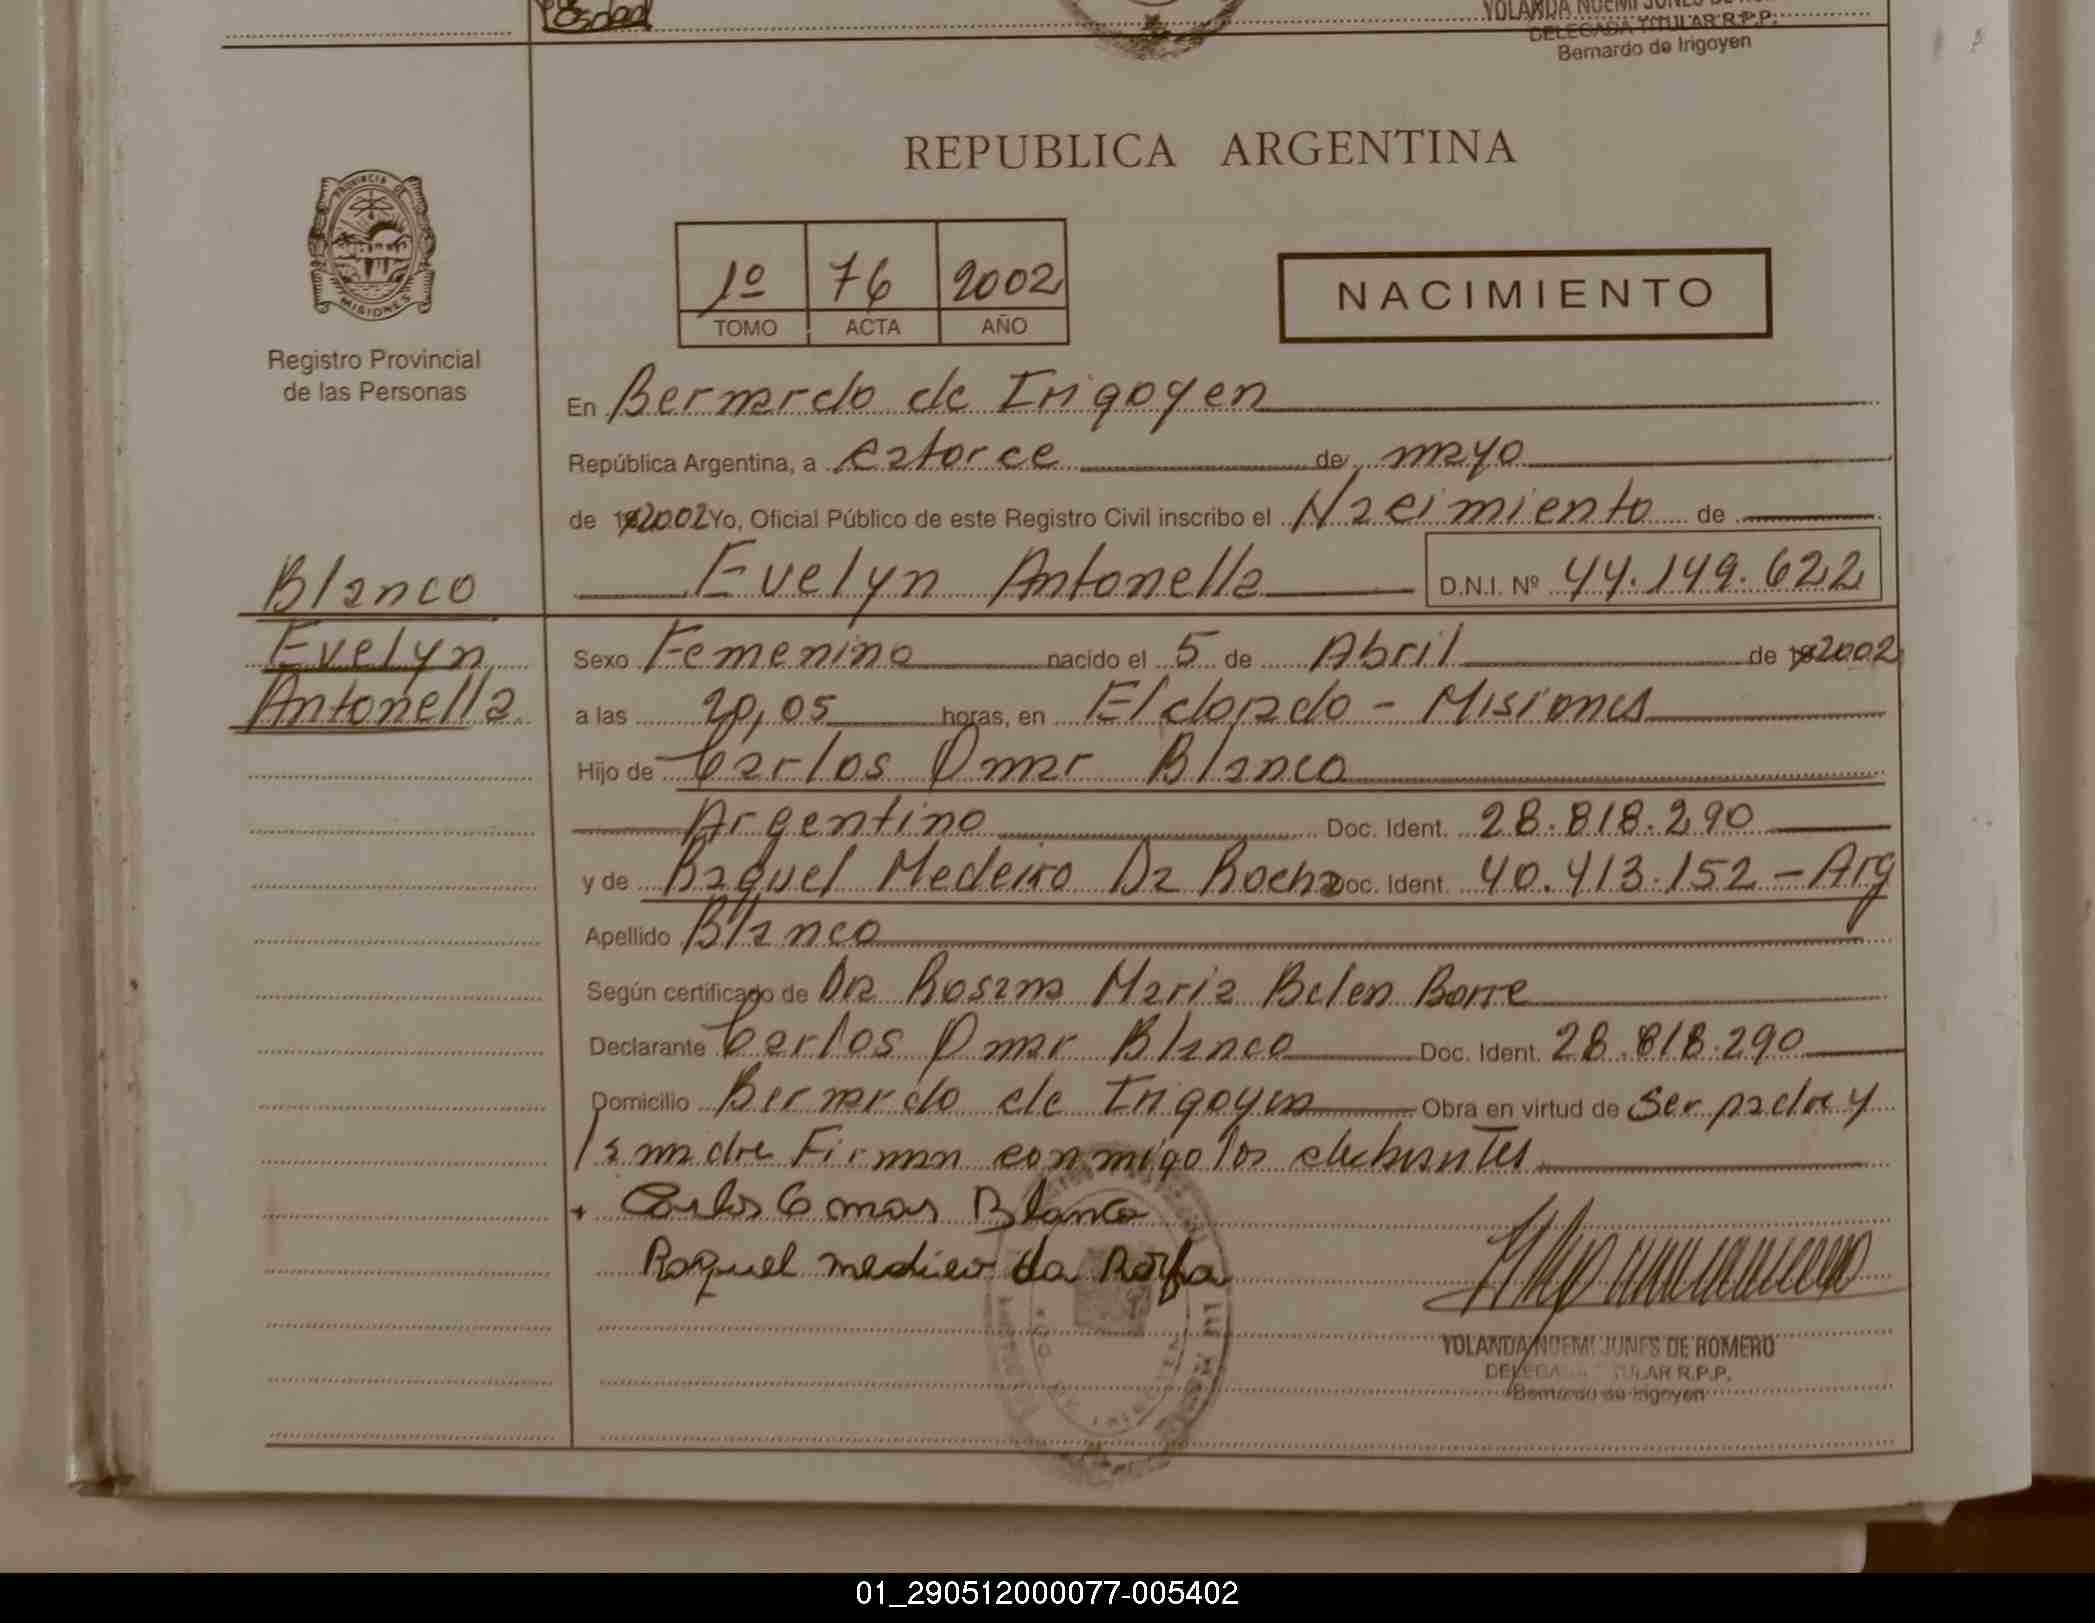 P/Edad
YOLANDA NOEMI JUNES DE RO
DELEGADA TITULAR R.P.P.
Bernardo de Irigoyen
REPUBLICA ARGENTINA
PROVINCIA DE
MISIONES
Registro Provincial
de las Personas
1º 76 2002
TOMO ACTA AÑO
NACIMIENTO
En Bernardo de Irigoyen
República Argentina, a catorce de mayo
de 2002 Yo, Oficial Público de este Registro Civil inscribo el Nacimiento de
Blanco Evelyn Antonella D.N.I. Nº 44.149.622
Evelyn Sexo Femenino nacido el 5 de Abril de 2002
Antonella a las 20,05 horas, en Eldorado - Misiones
Hijo de Carlos Omar Blanco
Argentino Doc. Ident. 28.818.290
y de Raquel Medeiro Da Rocha Doc. Ident. 40.413.152 - Arg
Apellido Blanco
Según certificado de Dra Rosana Maria Belen Borre
Declarante Carlos Omar Blanco Doc. Ident. 28.818.290
Domicilio Bernardo de Irigoyen Obra en virtud de Ser padre y
la madre Firman conmigo los
Carlos Omar Blanco
Raquel da
YOLANDA NOEMI JUNES DE ROMERO
DELEGADA TITULAR R.P.P.
Bernardo de Irigoyen
01_290512000077-005402